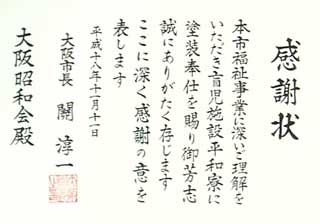 感謝状
本市福祉事業に深いご理解を
いただき盲児施設平和寮に
塗装奉仕を賜り御芳志
誠にありがたく存じます
ここに深く感謝の意を
表します
平成十八年十一月十一日
大阪市長 關 淳一
大阪昭和会殿